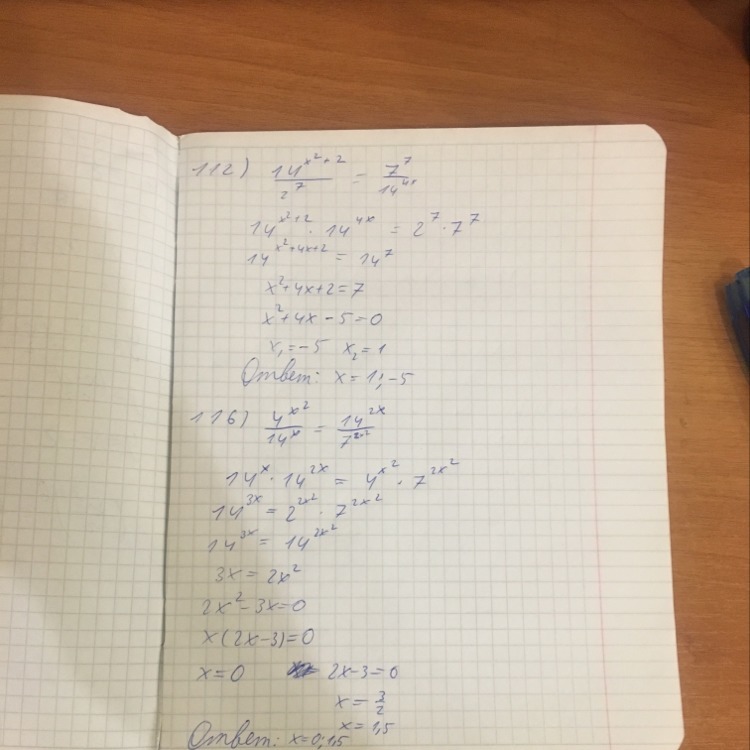 112) 14^(x²+2) / 2^7 = 7^7 / 14^(4x)
14^(x²+2) · 14^(4x) = 2^7 · 7^7
14^(x²+4x+2) = 14^7
x²+4x+2=7
x²+4x-5=0
x₁=-5 x₂=1
Ответ: x=1; -5
116) 4^(x²) / 14^x = 14^(2x) / 7^(2x²)
14^x · 14^(2x) = 4^(x²) · 7^(2x²)
14^(3x) = 2^(2x²) · 7^(2x²)
14^(3x) = 14^(2x²)
3x = 2x²
2x²-3x=0
x(2x-3)=0
x=0 2x-3=0
x=3/2
x=1,5
Ответ: x=0; 1,5